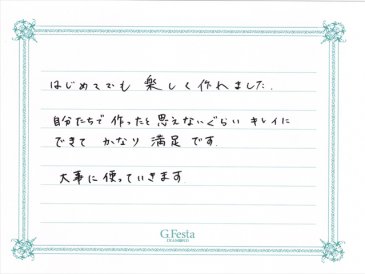 はじめてでも 楽しく作れました.
自分たちで 作ったと 思えないぐらい キレイに
できて かなり 満足 です.
大事に 使っていきます
G.Festa